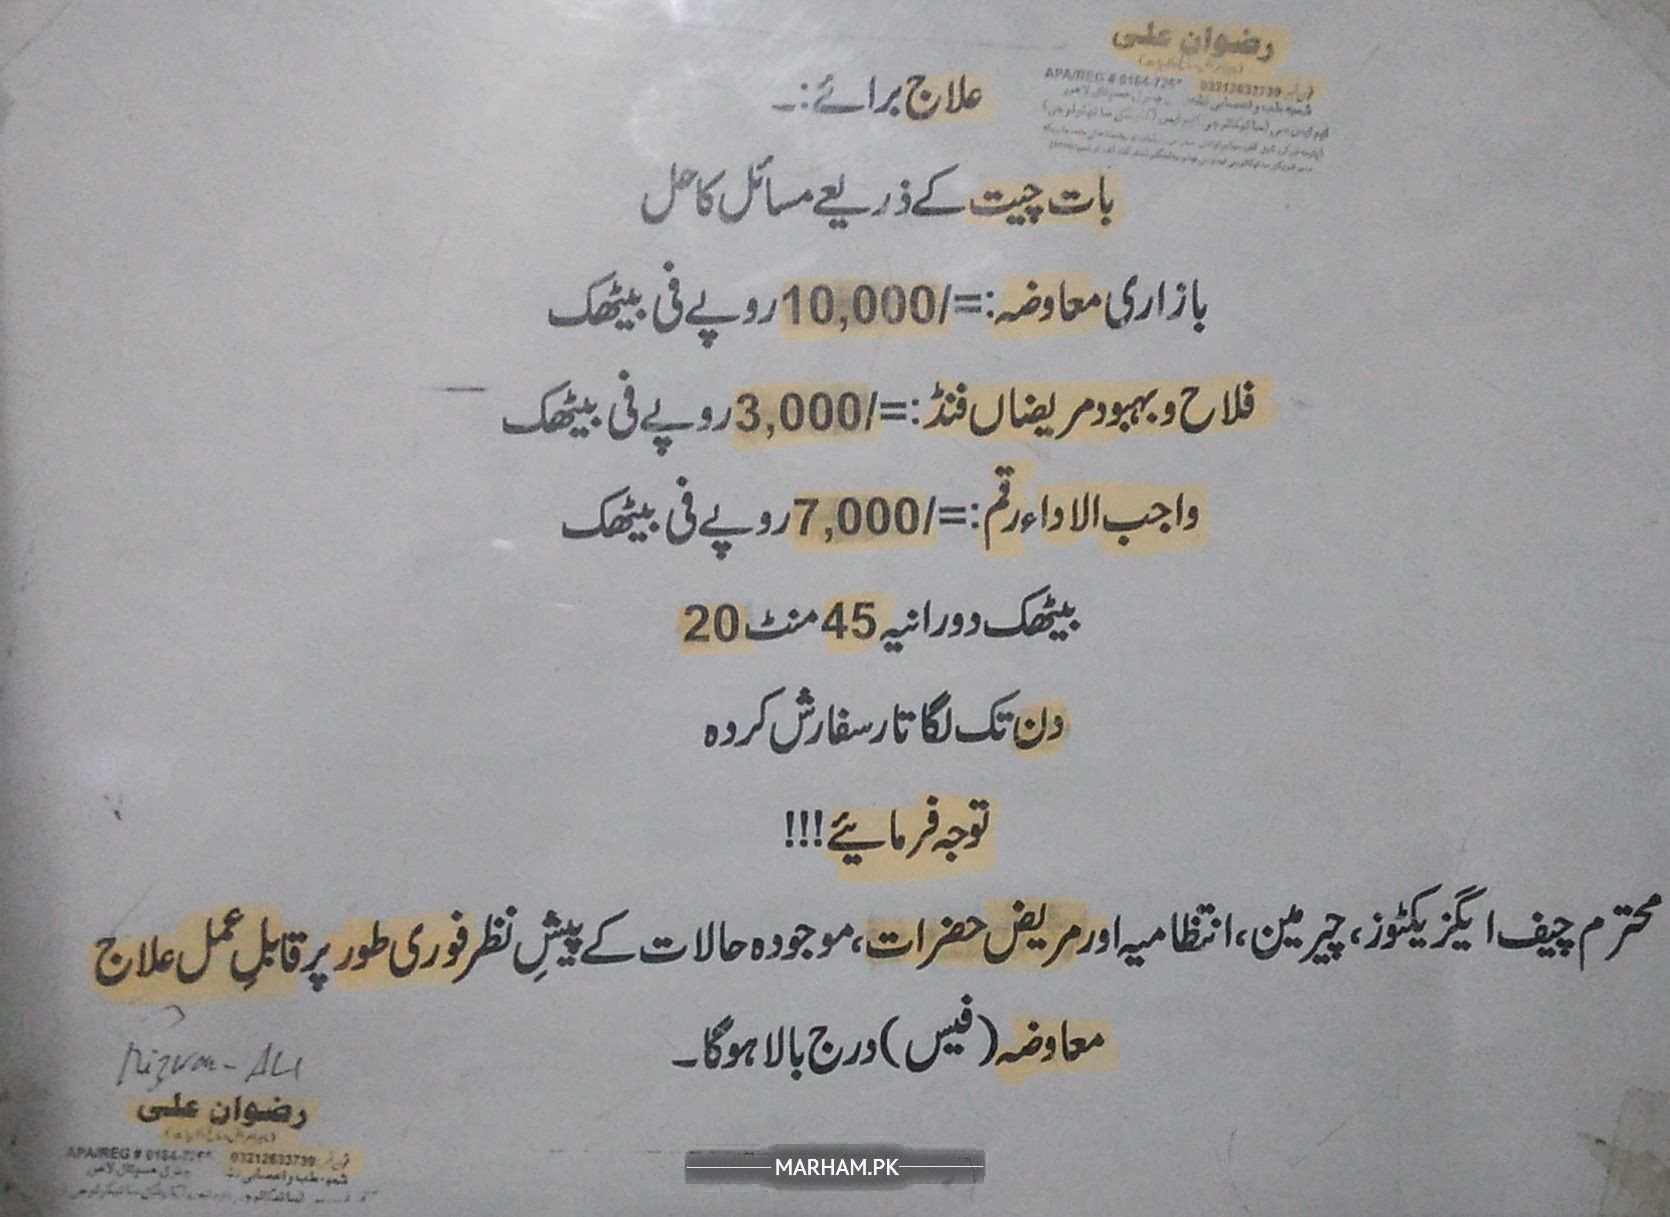 رضوان علی
APA/REG # 0184-72
شعبہ طب و
علاج برائے:۔
بات چیت کے ذریعے مسائل کا حل
بازاری معاوضہ:=/10,000 روپے فی بیٹھک
فلاح و بہبود مریضاں فنڈ:=/3,000 روپے فی بیٹھک
واجب الاداء رقم:=/7,000 روپے فی بیٹھک
بیٹھک دورانیہ 45 منٹ 20
دن تک لگا تار سفارش کردہ
توجہ فرمایئے!!!
محترم چیف ایگزیکٹوز، چیرمین، انتظامیہ اور مریض حضرات، موجودہ حالات کے پیشِ نظر فوری طور پر قابلِ عمل علاج
معاوضہ (فیس) درج بالا ہوگا۔
Rizwan-Ali
رضوان علی
APA/REG # 0184-72
MARHAM.PK